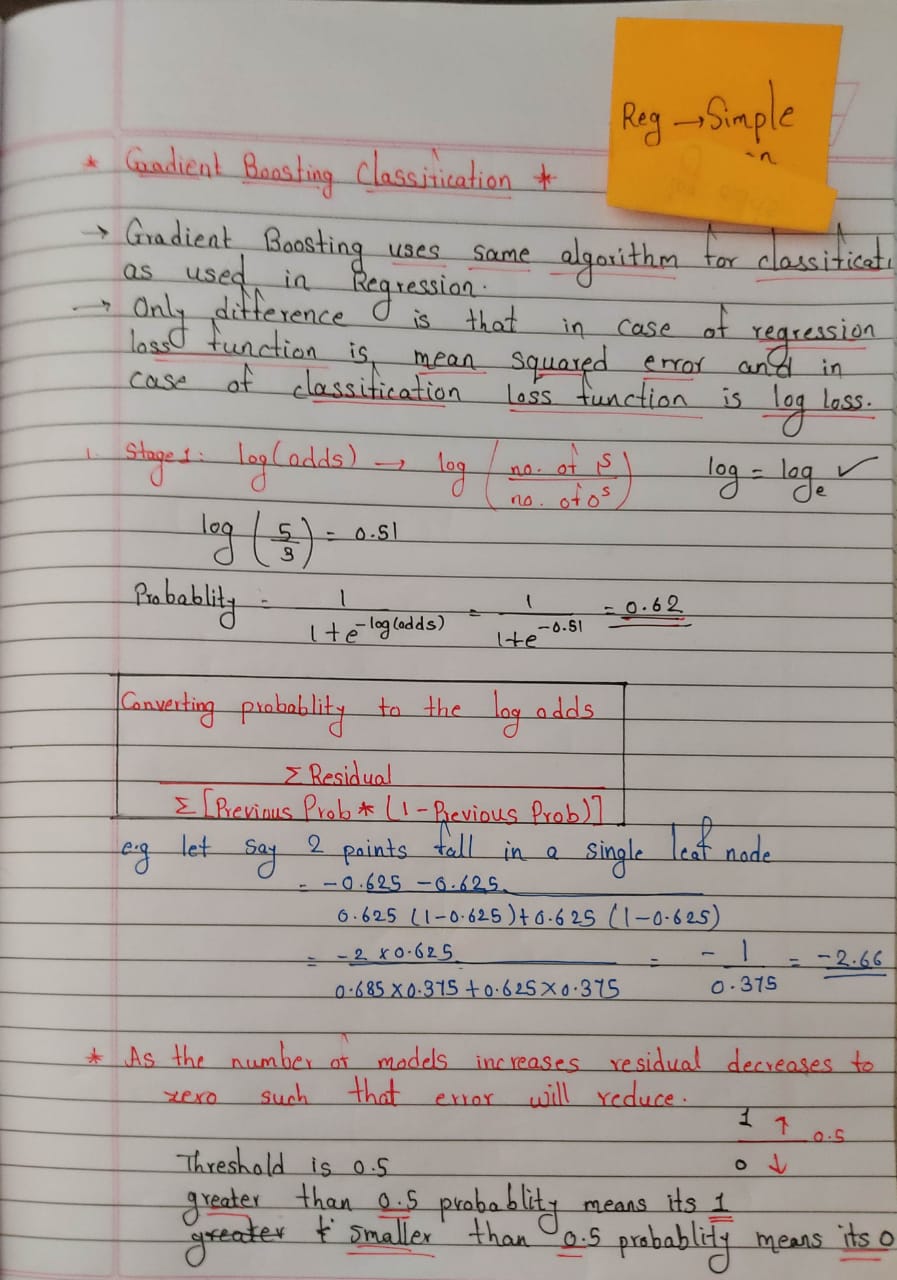 Reg → Simple
in
* Gradient Boosting Classification *
→ Gradient Boosting uses same algorithm for classificati
as used in Regression.
→ Only difference is that in case of regression
loss function is mean squared error and in
case of classification loss function is log loss.
1. Stage 1: log(odds) → log (no. of 1s / no. of 0s) log = loge ✓
log (5/3) = 0.51
Probablity = 1 / 1+e^-log(odds) = 1 / 1+e^-0.51 = 0.62
Converting probablity to the log odds
Σ Residual
Σ [Previous Prob * (1 - Previous Prob)]
e.g let say 2 points fall in a single leaf node
= -0.625 - 0.625
0.625 (1-0.625) + 0.625 (1-0.625)
= -2 x 0.625 / 0.685 x 0.375 + 0.625 x 0.375 = - 1 / 0.375 = -2.66
* As the number of models increases residual decreases to
zero such that error will reduce.
1 ↑ 0.5
0 ↓
Threshold is 0.5
greater than 0.5 probablity means its 1
greater & smaller than 0.5 probablity means its 0